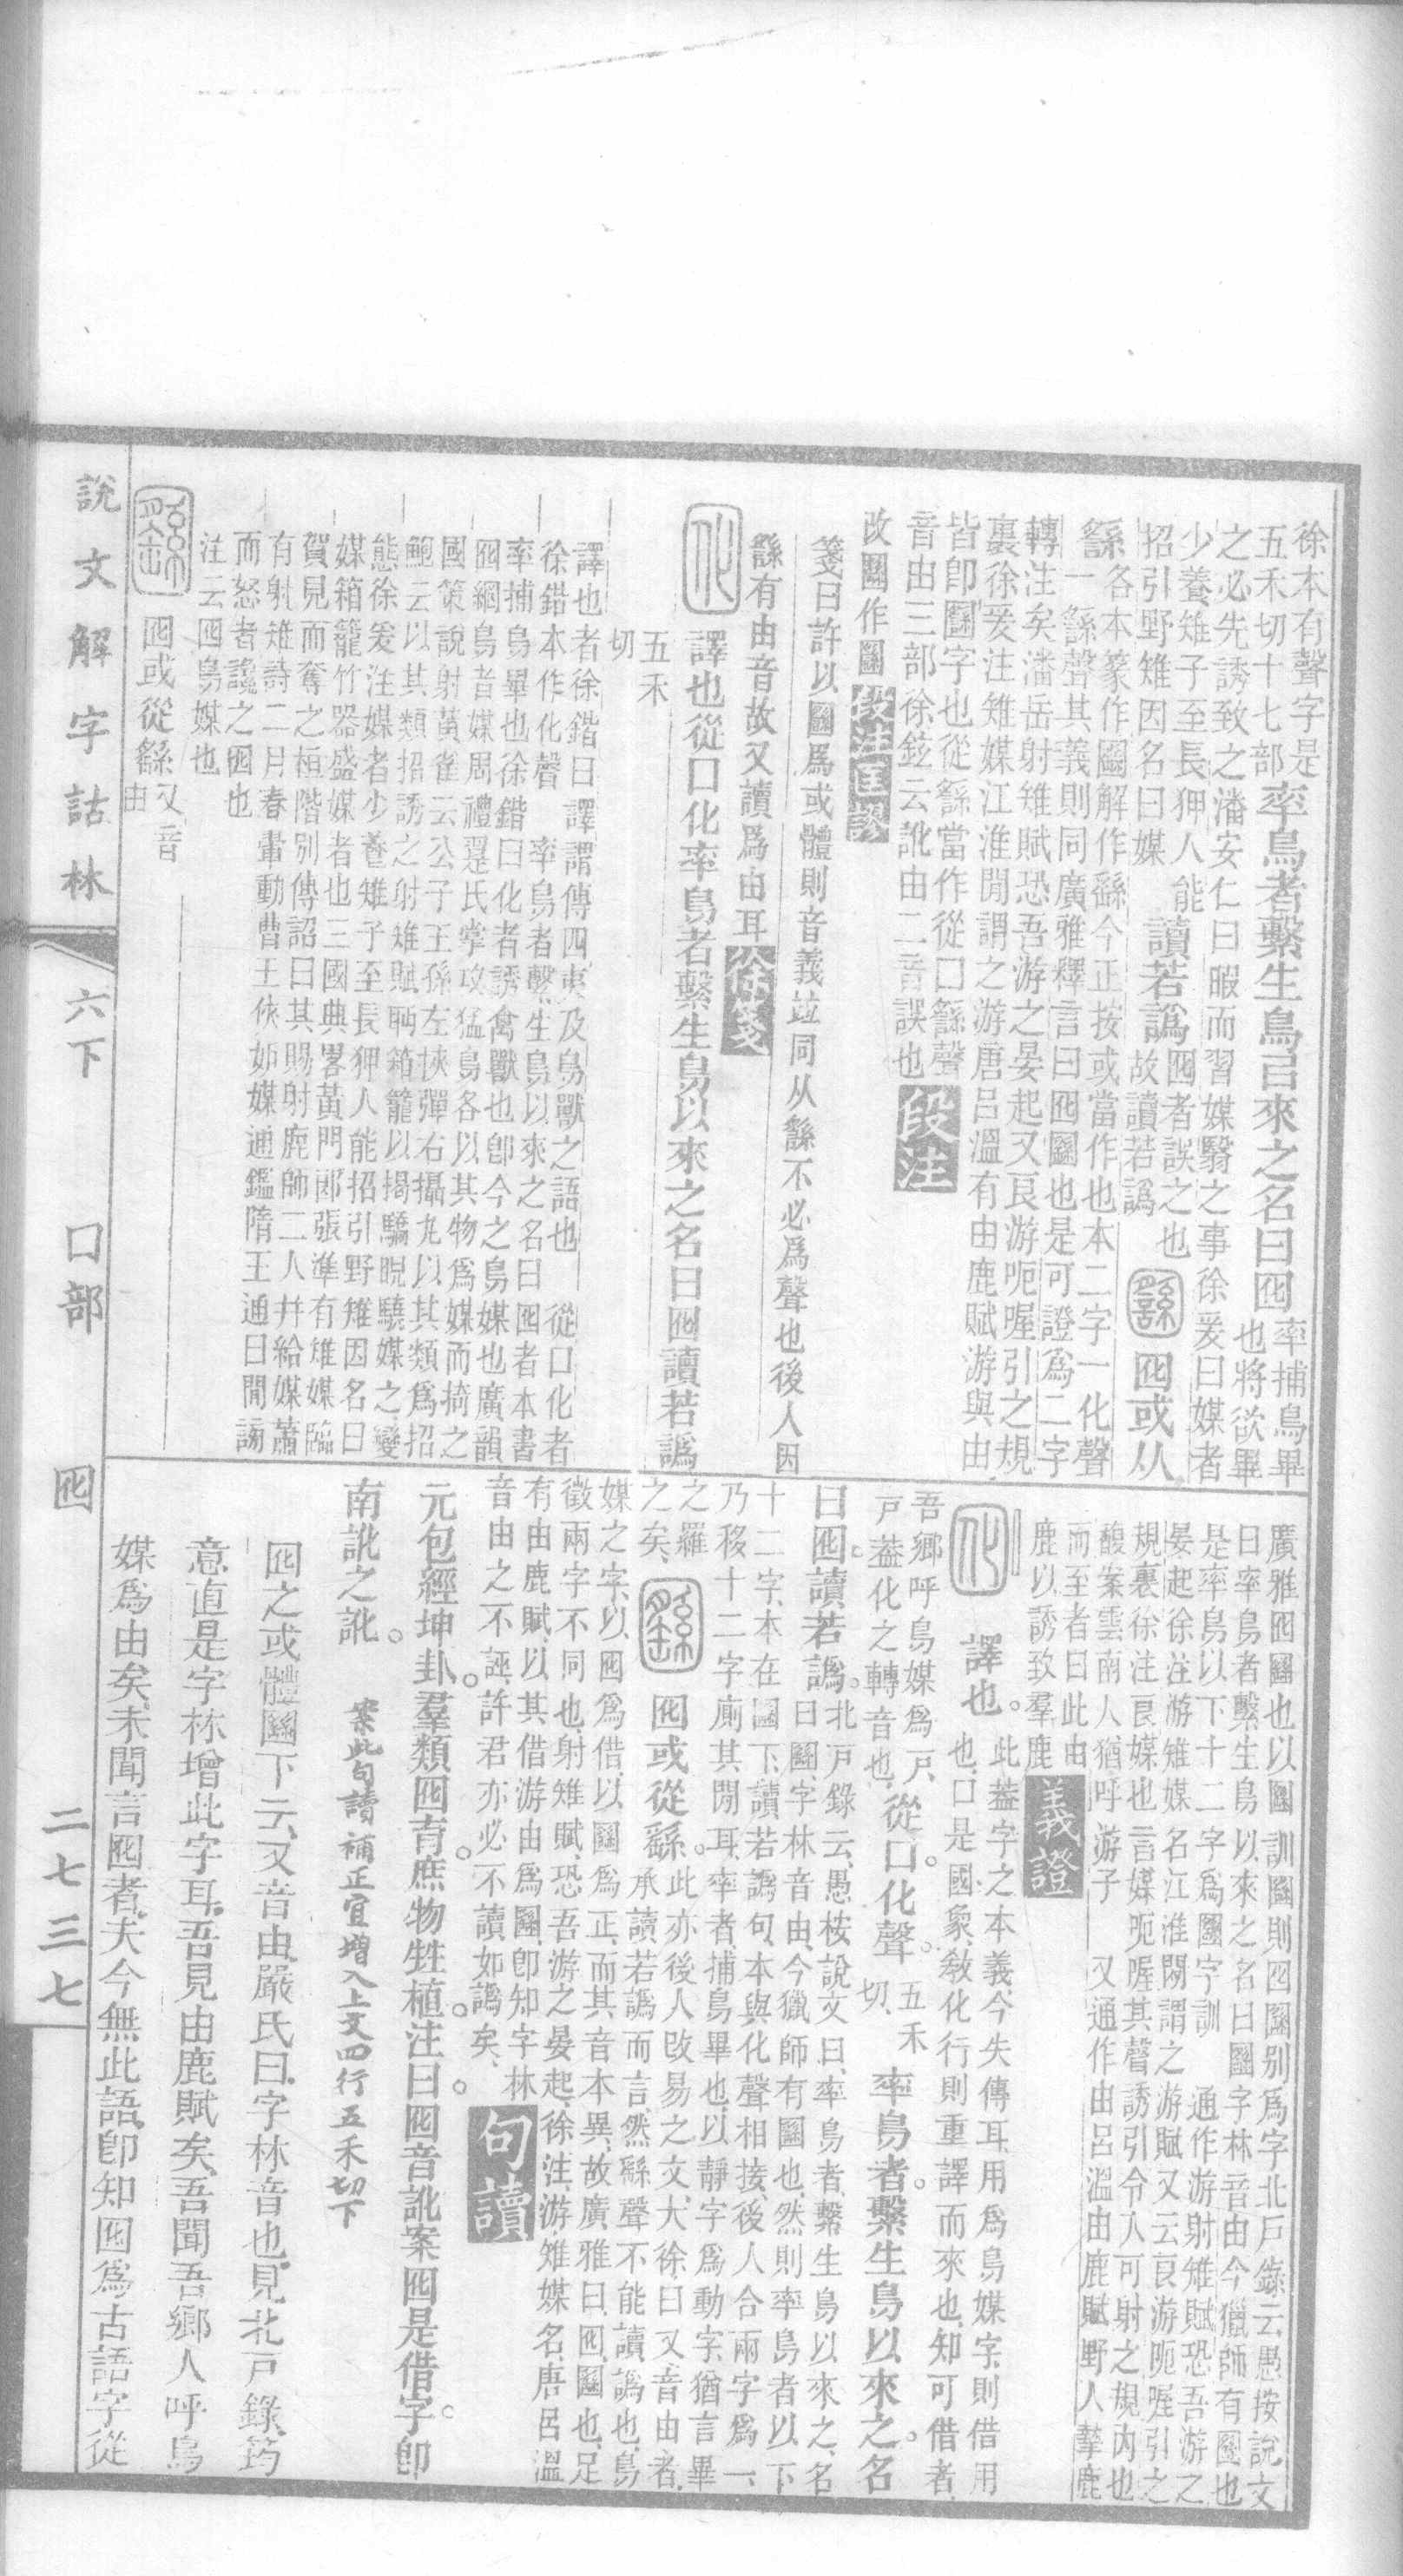 徐本有聲字是
五禾切十七部
率鳥者繫生鳥㠯來之名曰囮
率捕鳥畢
也將欲畢
之必先誘致之潘安仁曰暇而習媒翳之事徐爰曰媒者
少養雉子至長狎人能
招引野雉因名曰媒
讀若譌
囮者誤之也
故讀若譌
囮或从
繇
各本篆作圝解作繇今正按或當作也本二字一化聲
一繇聲其義則同廣雅釋言曰囮圝也是可證爲二字
轉注矣潘岳射雉賦恐吾游之晏起又良游呃喔引之規
裏徐爰注雉媒江淮閒謂之游唐呂溫有由鹿賦游與由
皆卽圝字也從繇當作從囗繇聲
音由三部徐鉉云訛由二音誤也
段注
改圝作圝
段注匡謬
箋曰許以圝爲或體則音義竝同从繇不必爲聲也後人因
繇有由音故又讀爲由耳
徐箋
譯也從囗化率鳥者繫生鳥以來之名曰囮讀若譌
五禾
切
譯也者徐鍇曰譯謂傳四夷及鳥獸之語也
從囗化者
徐鍇本作化聲
率鳥者繫生鳥以來之名曰囮者本書
率捕鳥畢也徐鍇曰化者誘禽獸也卽今之鳥媒也廣韻
囮網鳥者媒周禮翨氏掌攻猛鳥各以其物爲媒而掎之
國策說射黃雀云公子王孫左挾彈右攝丸以其類爲招
鮑云以其類招誘之射雉賦眄箱籠以揭驕睨驍媒之變
態徐爰注媒者少養雉子至長狎人能招引野雉因名曰
媒箱籠竹器盛媒者也三國典畧黃門郎張準有雄媒臨
賀見而奪之桓階別傳詔曰其賜射鹿師二人幷給媒蕭
有射雉詩二月春畫動曹王俠妬媒通鑑隋王通曰聞謗
而怒者讒之囮也
注云囮鳥媒也
囮或從繇
又音
由
廣雅囮圝也以圝訓圝則囮圝別爲字北戶錄云愚按說文
曰率鳥者繫生鳥以來之名曰圝字林音由今獵師有圝也
是率鳥以下十二字爲圝字訓
通作游射雉賦恐吾游之
晏起徐注游雉媒名江淮閒謂之游賦又云良游呃喔引之
規裏徐注良媒也言媒呃喔其聲誘引令人可射之規內也
馥案雲南人猶呼游子
又通作由呂溫由鹿賦野人摯鹿
而至者曰此由
鹿以誘致羣鹿
義證
譯也。
此蓋字之本義今失傳耳用爲鳥媒字則借用
也囗是國象敎化行則重譯而來也知可借者
吾鄉呼鳥媒爲尸
尸蓋化之轉音也
從囗。化聲。
五禾
切
率鳥者。繫生鳥以來之。名
曰囮。讀若譌。
北戶錄云愚桉說文曰率鳥者繫生鳥以來之名
曰圝字林音由今獵師有圝也然則率鳥者以下
十二字本在圝下讀若譌句本與化聲相接後人合兩字爲一
乃移十二字廁其閒耳率者捕鳥畢也以靜字爲動字猶言畢
之羅
之矣
囮或從繇。
此亦後人改易之文大徐曰又音由者
承讀若譌而言然繇聲不能讀譌也鳥
媒之字以囮爲借以圝爲正而其音本異故廣雅曰囮圝也足
徵兩字不同也射雉賦恐吾游之晏起徐注游雉媒名唐呂溫
有由鹿賦以其借游由爲圝卽知字林
音由之不誣許君亦必不讀如譌矣
句讀
元包經坤卦。羣類囮育。庶物牲植。注曰。囮音訛案囮是借字。卽
南訛之訛。
案此句讀補正宜增入上文四行五禾切下
囮之或體圝下云又音由嚴氏曰字林音也見北戶錄筠
意直是字林增此字耳吾見由鹿賦矣吾聞吾鄉人呼鳥
媒爲由矣未聞言囮者夫今無此語卽知囮爲古語字從
說文解字詁林
六下
囗部
囮
二七三七